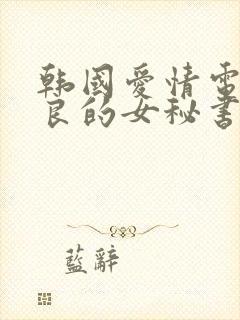 韩國爱情電
良的女秘書
藍辭